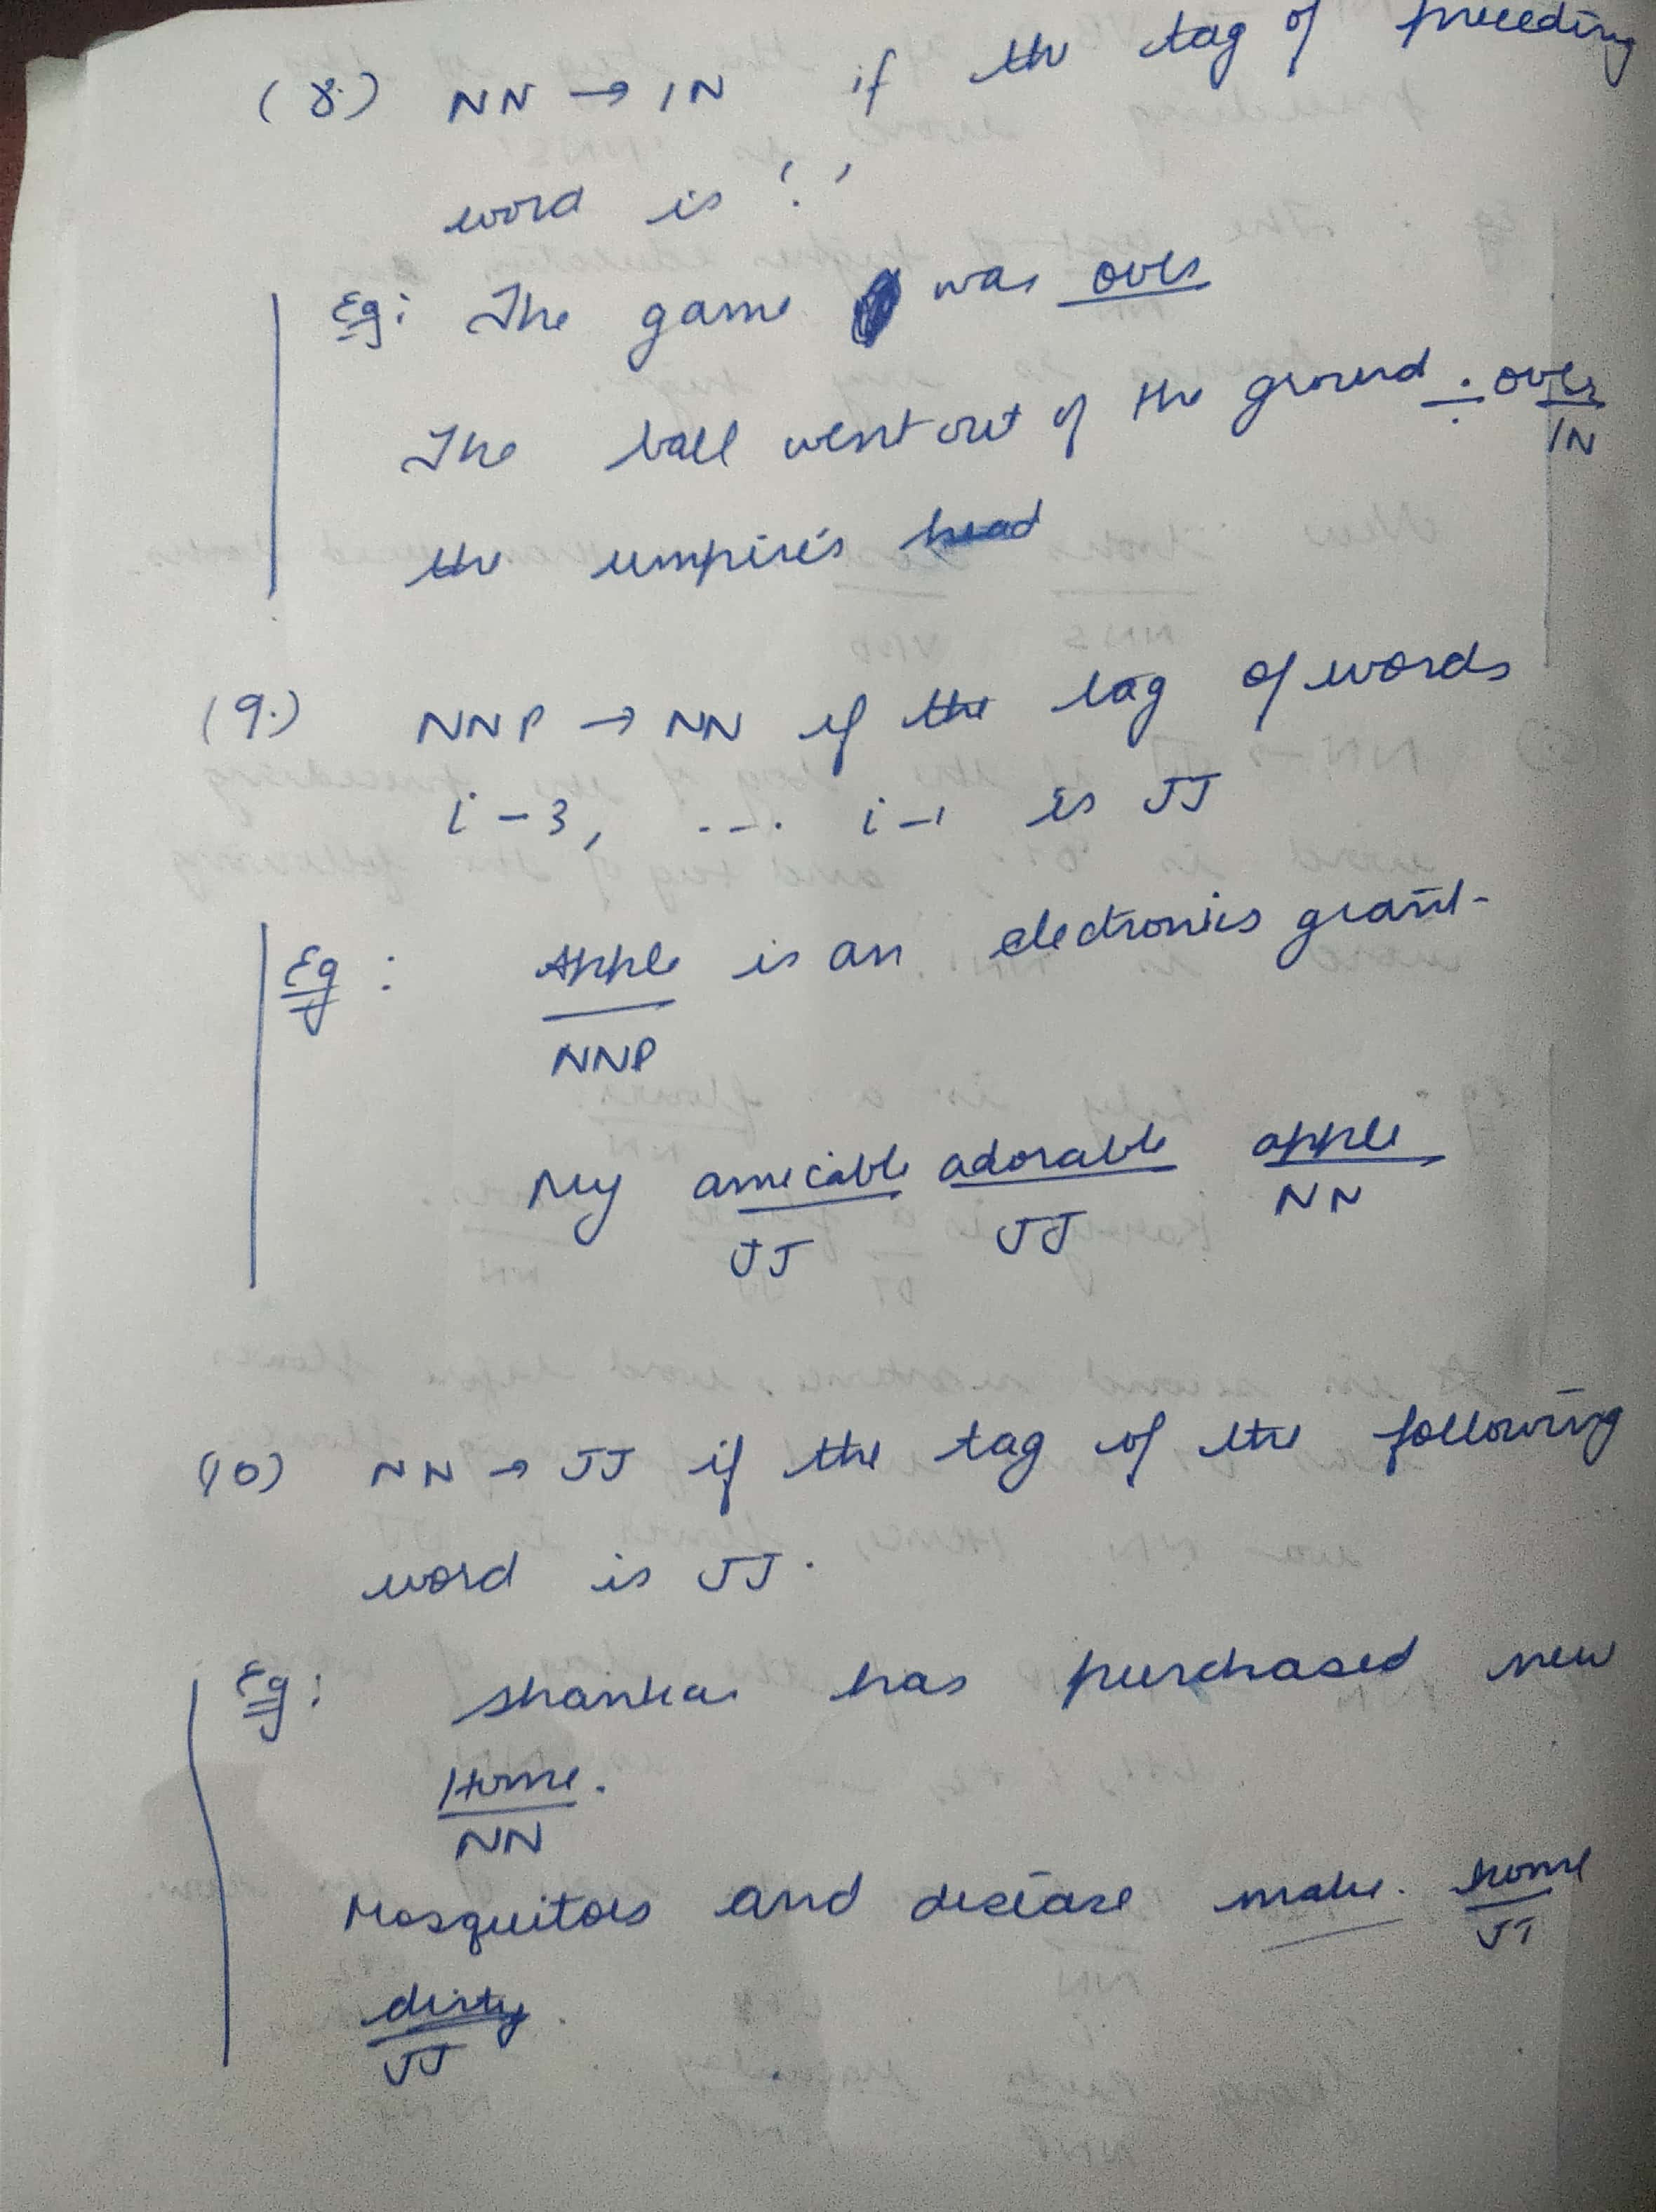 (8.) NN → IN if the tag of preceding
word is '.'
Eg: The game was over
The ball went out of the ground . over
IN
the umpire's head
(9.) NNP → NN if the tag of words
i-3, ---. i-1 is JJ
Eg : Apple is an electronics giant.
NNP
My amicable adorable apple
JJ JJ NN
(10) NN → JJ if the tag of the following
word is JJ.
Eg: Shankar has purchased new
Home.
NN
Mosquitoes and disease make home
JJ
dirty.
JJ